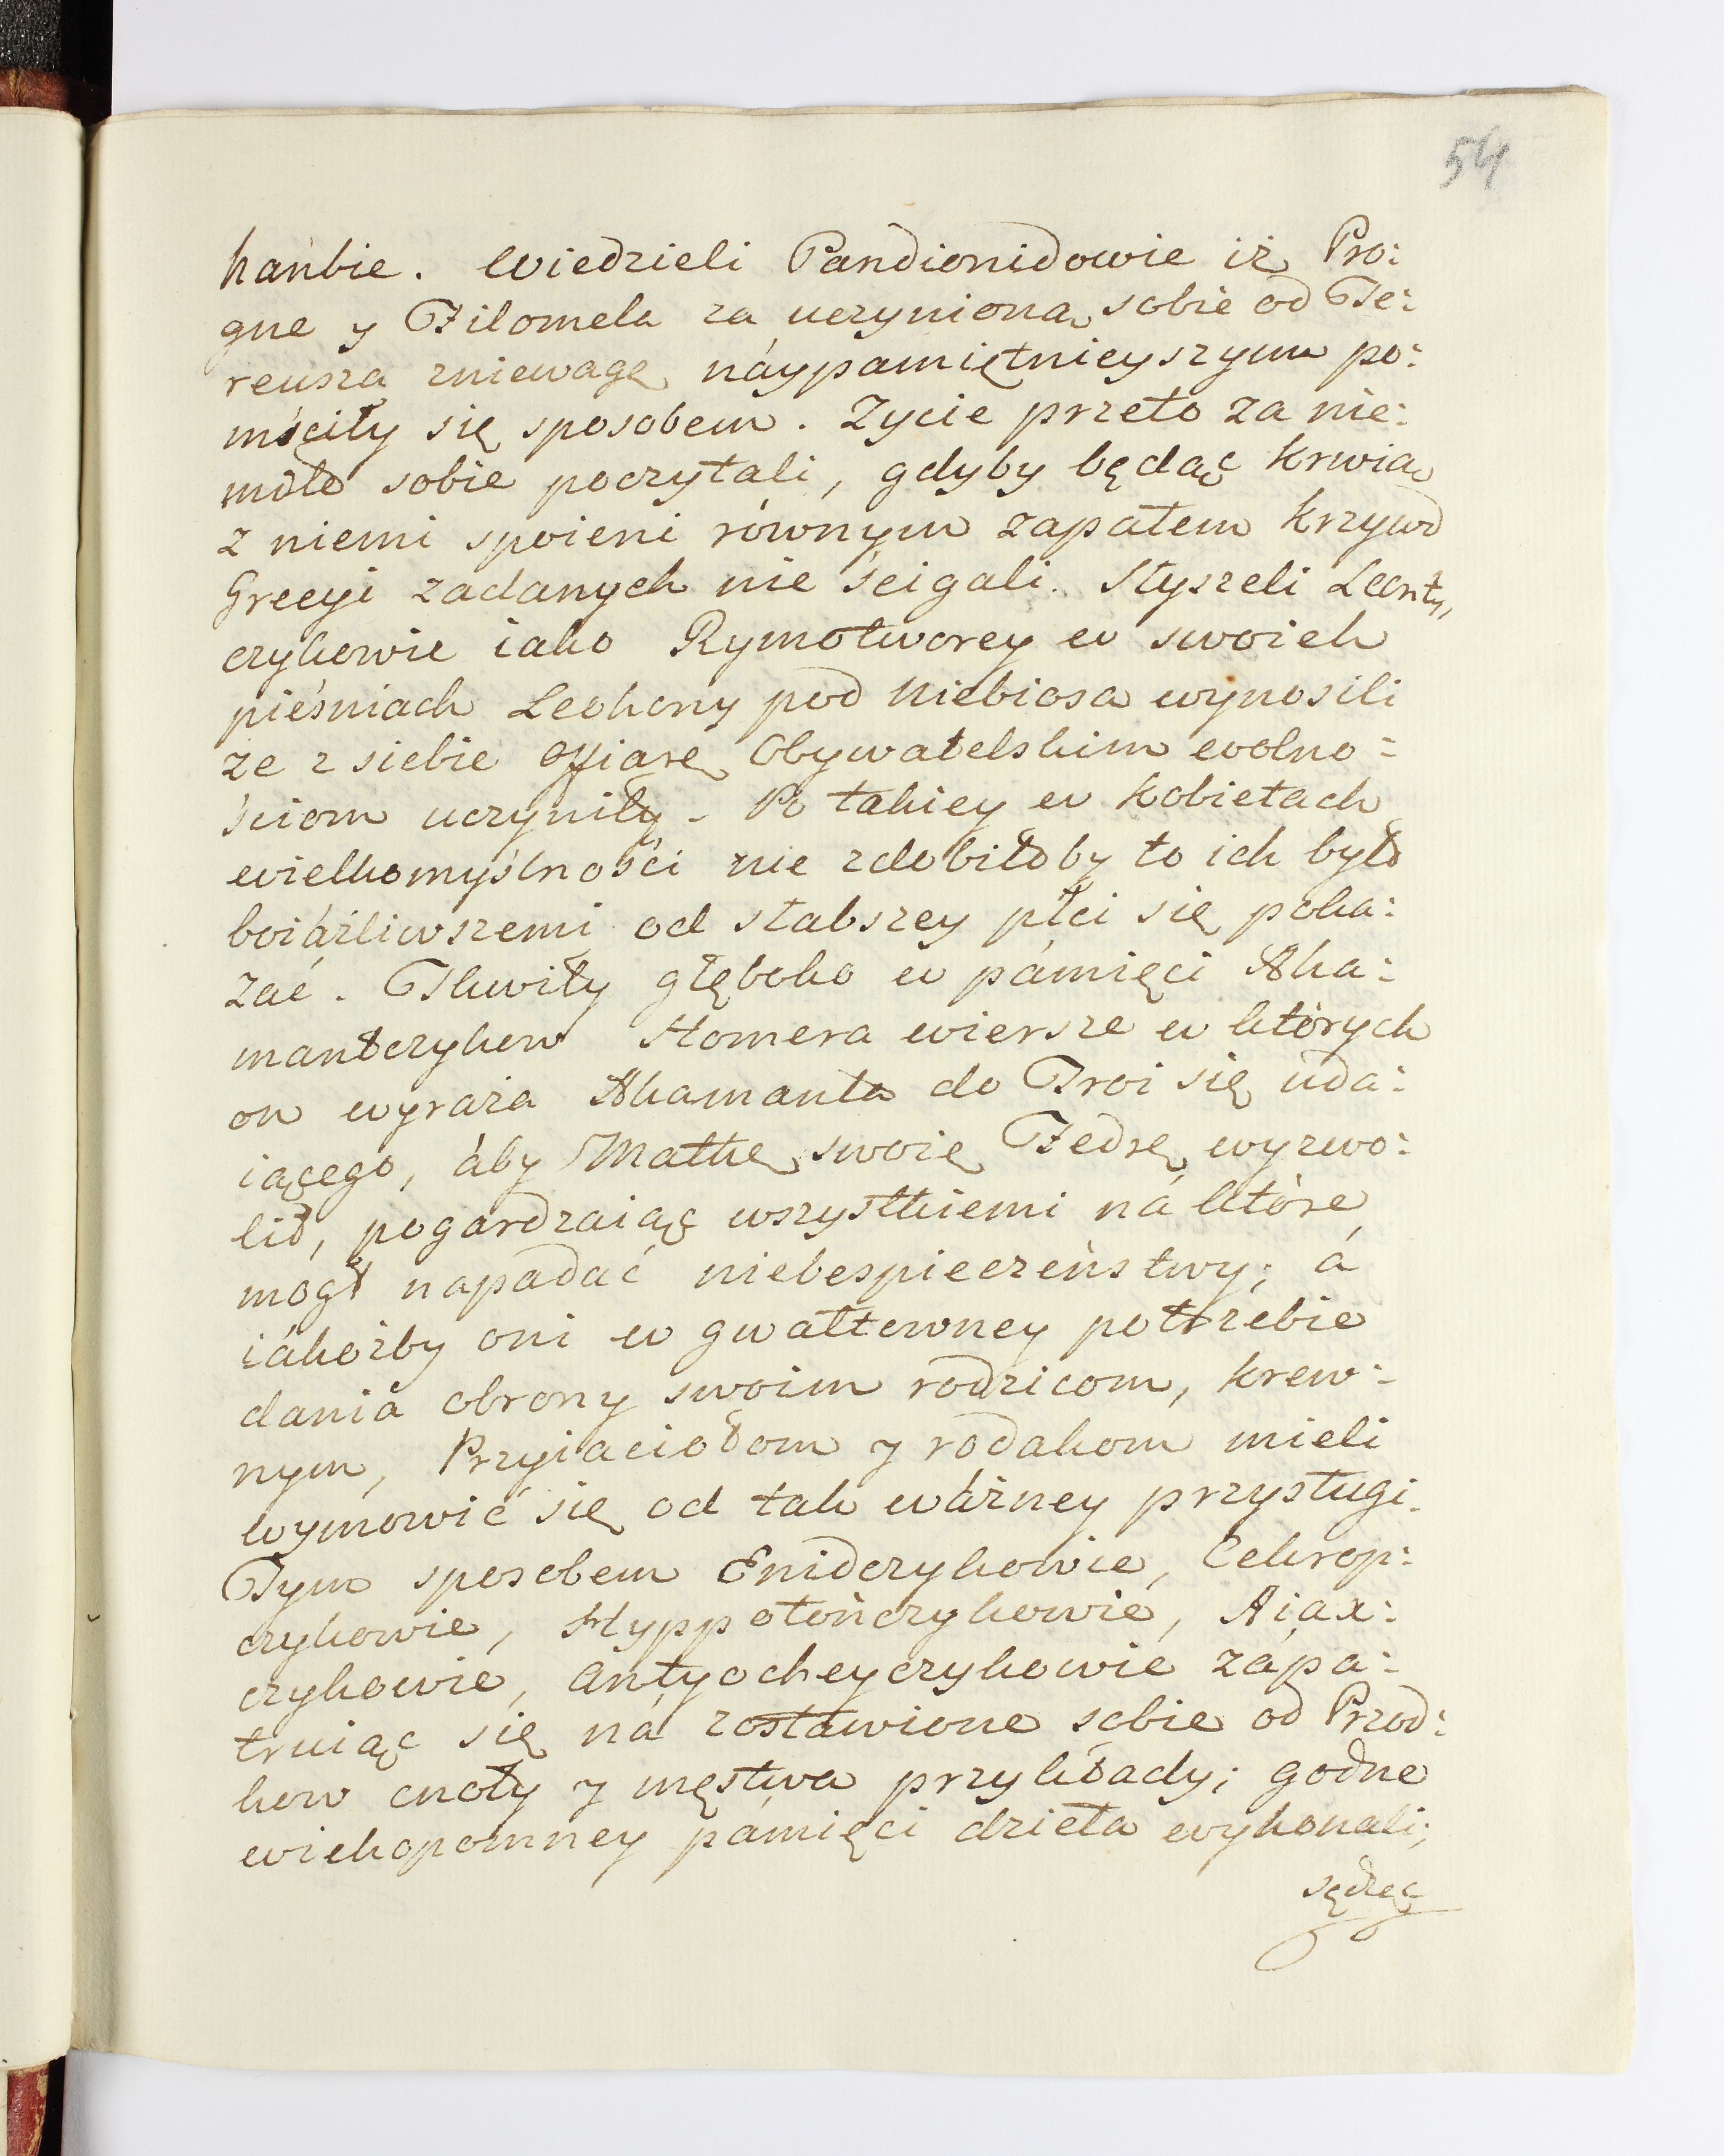 54
hańbie. Wiedzieli Pandionidowie iż Pro:
gne y Filomela za uczynioną sobie od Te:
reusza zniewagę náypamiętnieyszym po:
mściły się sposobem. Zycie przeto za nie:
miłe sobie poczytali, gdyby będąc krwią
z niemi spoieni równym zapałem krzywd
Grecyi zadanych nie ścigali. Słyszeli Leonty„
czykowie iako Rymotworcy w swoich
pieśniach Leokony pod niebiosa wynosili
że z siebie offiarę Obywatelskim wolno:
ściom uczyniły. Po takiey w kobietach
wielkomyślności nie zdobiłoby to ich było
boiáźliwszemi od słabszey płci się poka:
zać. Tkwiły głęboko w pámięci Aka:
mantczykow Homera wiersze w których
on wyraża Akamanta do Troi się uda:
iącego, áby Matkę swoię Fedrę wyzwo:
lił, pogardzaiąc wszystkiemi ná które
mógł napadać niebespieczeństwy; á
iákożby oni w gwałtowney potrzebie
dania obrony swoim rodzicom, krew:
nym, Przyiaciołom y rodakom mieli
wymowić się od tak wáżney przysługi.
Tym sposobem Enidczykowie, Cekrop:
czykowie, Hyppotończykowie, Aiax:
czykowie, Antyocheyczykowie zápa:
truiąc się ná zostáwione sobie od Przod:
kow cnoty y męstwa przykłady; godne
wiekopomney pámięci dzieła wykonali;